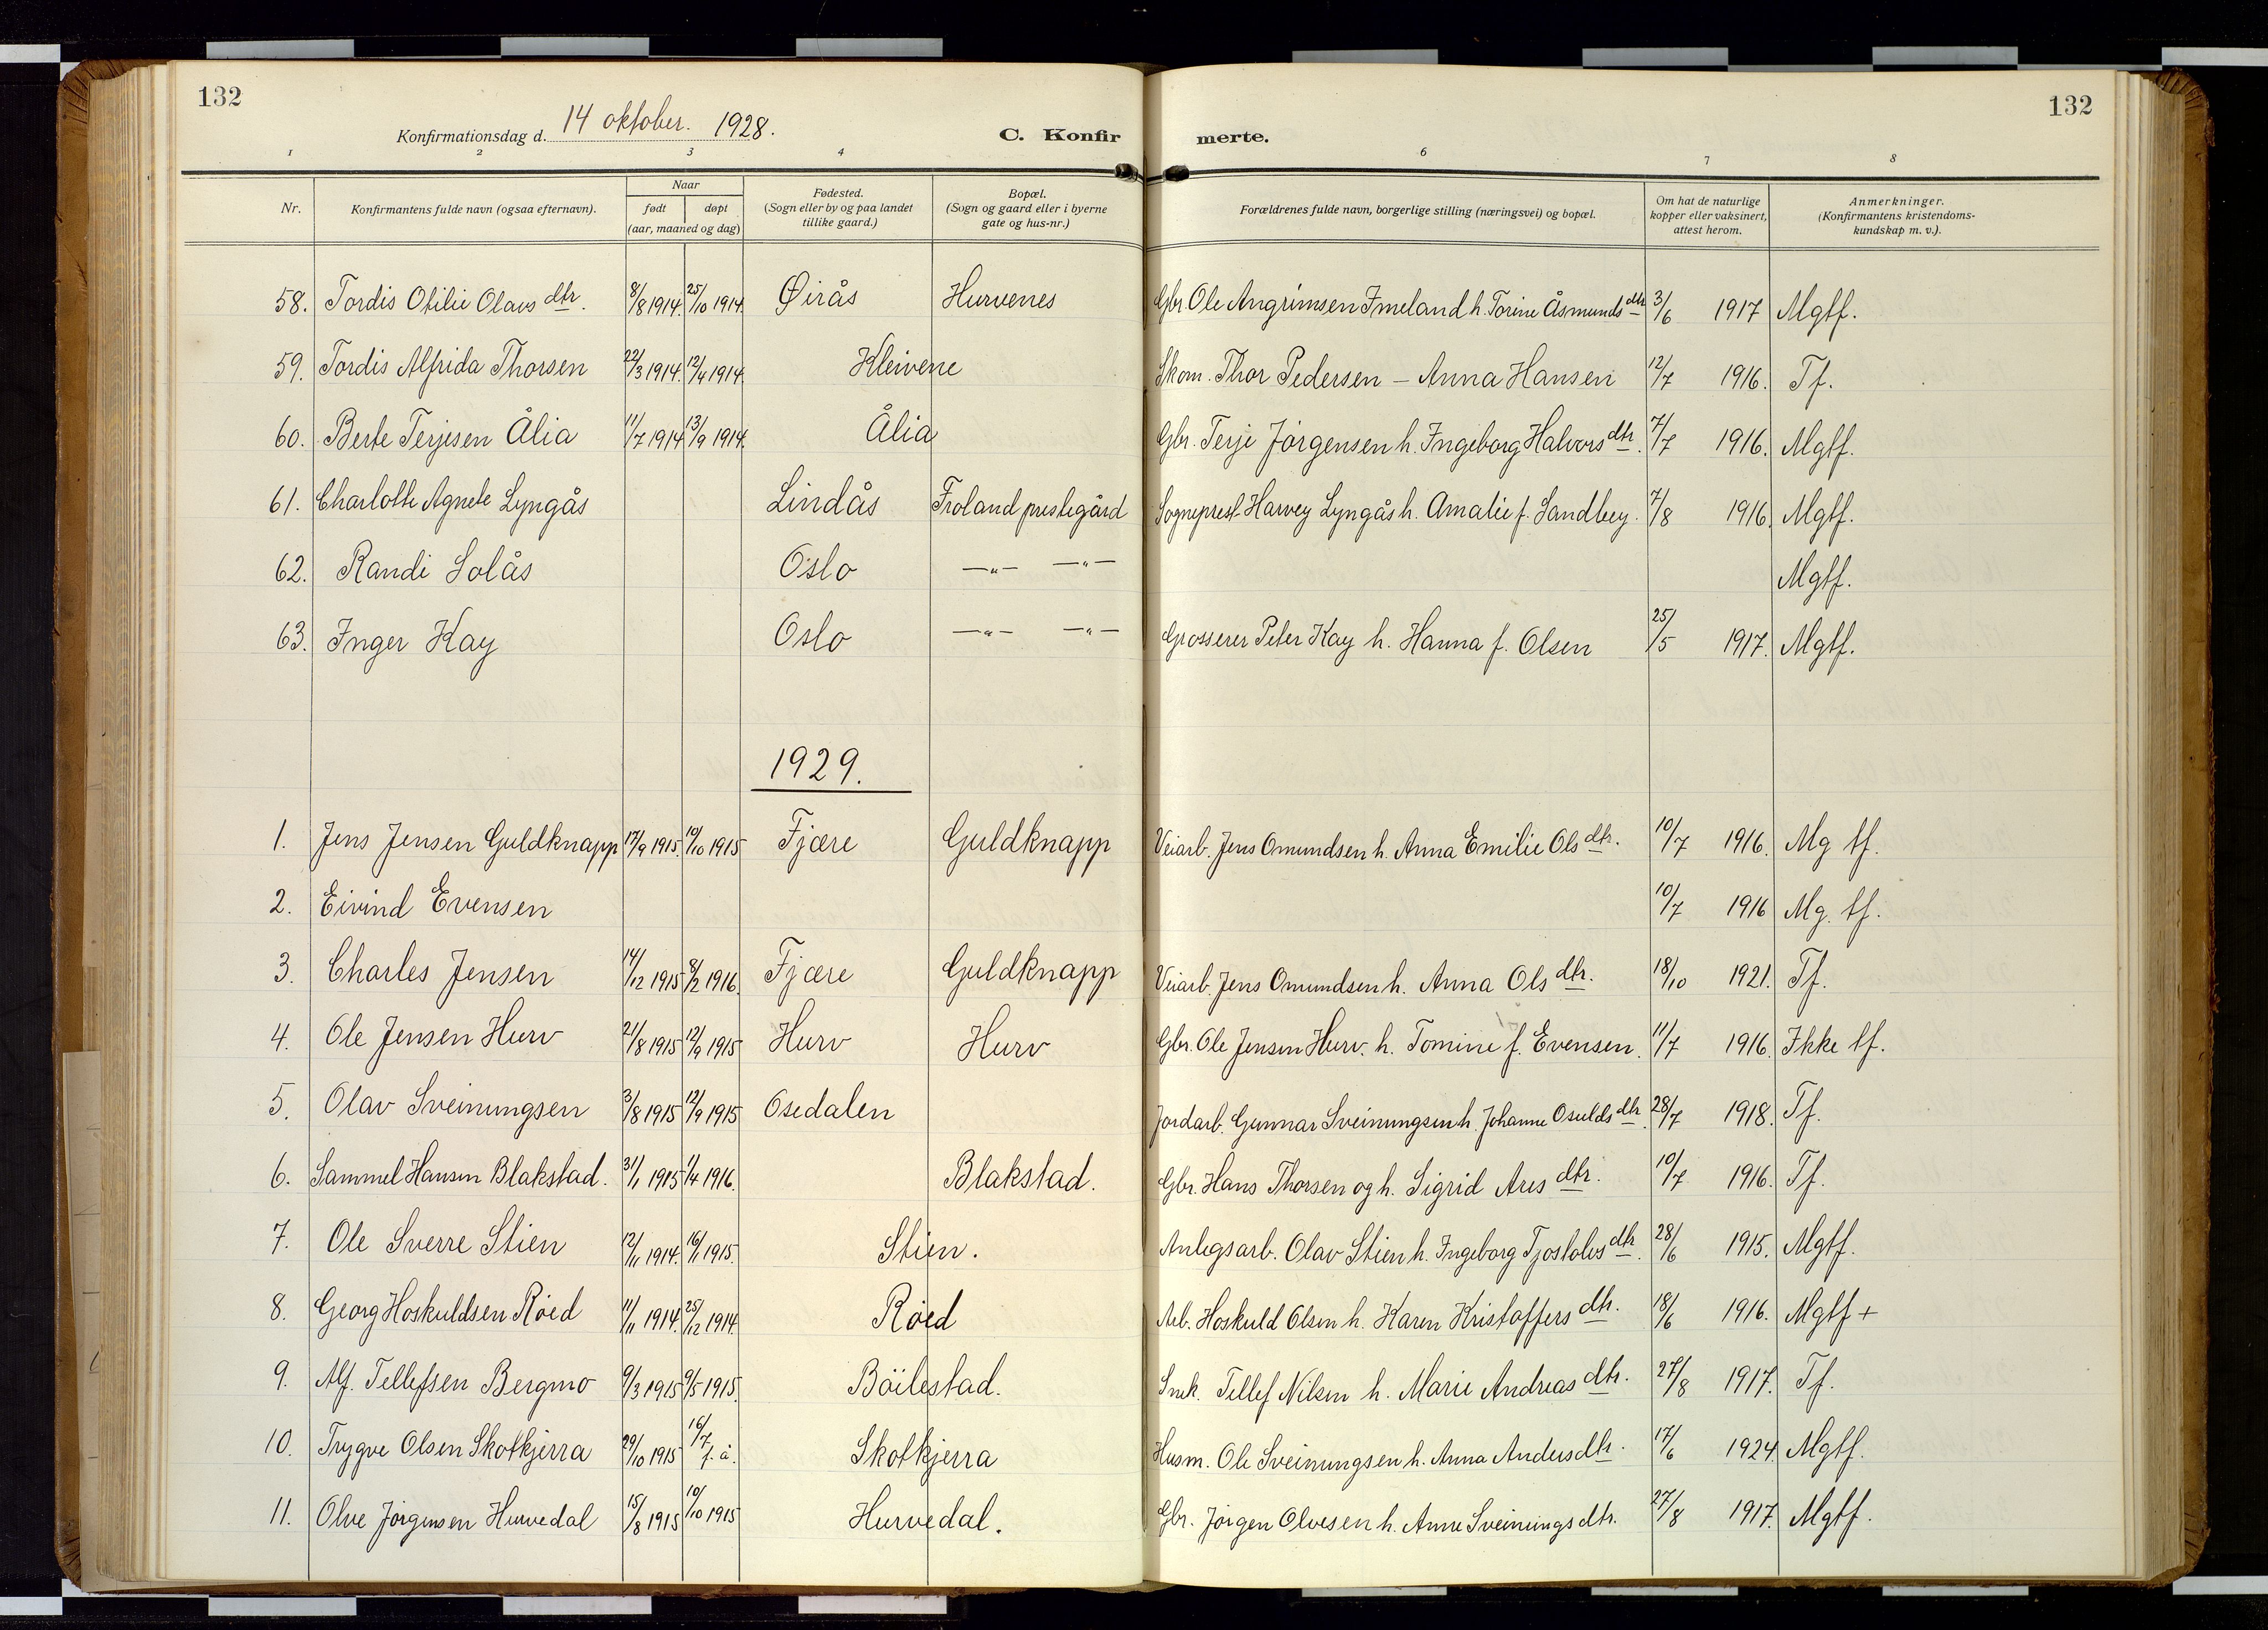 132
132
Konfirmationsdag d. 14 oktober. 1928.
C. Konfir merte.
1 2 3 4 6 7 8
Nr.
Konfirmantens fulde navn (ogsaa efternavn).
Naar
født døpt
(aar, maaned og dag)
Fødested.
(Sogn eller by og paa landet
tillike gaard.)
Bopæl.
(Sogn og gaard eller i byerne
gate og hus-nr.)
Forældrenes fulde navn, borgerlige stilling (næringsvei) og bopæl.
Om hat de naturlige
kopper eller vaksinert,
attest herom.
Anmerkninger.
(Konfirmantens kristendoms-
kundskap m. v.).
58. Tordis Otilie Olavs dtr. 8/8 1914. 25/10 1914. Øirås Hurvenes Gbr. Ole Angrimsen Imeland h. Torine Åsmunds dtr 3/6 1917 Mgtf.
59. Tordis Alfrida Thorsen 22/3 1914. 12/4 1914. Kleivene Skom. Thor Pedersen – Anna Hansen 12/7 1916. Tf.
60. Berte Terjesen Ålia 11/7 1914 13/9 1914. Ålia Gbr. Terje Jörgensen h. Ingeborg Halvors dtr. 7/7 1916. Mgtf.
61. Charlotte Agnete Lyngås Lindås Froland prestegård Sogneprest Harvey Lyngås h. Amalie f. Sandberg. 7/8 1916. Mgtf.
62. Randi Solås Oslo —"— —"— Mgtf.
63. Inger Kay Oslo —"— —"— Grosserer Peter Kay h. Hanna f. Olsen 25/5 1917. Mgtf.
1929.
1. Jens Jensen Guldknapp 17/9 1915. 10/10 1915 Fjære Guldknapp Veiarb. Jens Omundsen h. Anna Emilie Ols dtr. 10/7 1916. Mg tf.
2. Eivind Evensen 10/7 1916 Mg. tf.
3. Charles Jensen 14/12 1915 8/2 1916. Fjære Guldknapp Veiarb. Jens Omundsen h. Anna Ols dtr. 18/10 1921. Tf.
4. Ole Jensen Hurv 21/8 1915 12/9 1915 Hurv Hurv Gbr. Ole Jensen Hurv. h. Tomine f. Evensen. 11/7 1916. Ikke tf.
5. Olav Sveinungsen 3/8 1915 12/9 1915 Osedalen Jordarb. Gunnar Sveinungsen h. Johanne Osulds dtr. 28/7 1918. Tf.
6. Sammel Hansen Blakstad. 31/1 1915 1/4 1916. Blakstad. Gbr. Hans Thorsen og h. Sigrid Ares dtr. 10/7 1916. Tf.
7. Ole Sverre Stien 12/11 1914. 16/11 1915. Stien. Anlegsarb. Olav Stien h. Ingeborg Tjostolvs dtr. 28/6 1915. Mgtf.
8. Georg Hoskuldsen Röed 11/11 1914. 25/12 1914. Röed Arb. Hoskuld Olsen h. Karen Kristoffers dtr. 18/6 1916. Mgtf +
9. Alf. Tellefsen Bergmo 9/3 1915 9/5 1915. Böilestad. Snek. Tellef Nilsen h. Marie Andreas dtr. 27/8 1917. Tf.
10. Trygve Olsen Skotkjerra 29/10 1915 16/7 f. å. Skotkjerra Husm. Ole Sveinungsen h. Anna Anders dtr. 17/6 1924. Mgtf.
11. Olve Jörgensen Hurvedal 15/8 1915 10/10 1915 Hurvedal. Gbr. Jörgen Olvesen h. Anne Sveinungs dtr. 27/8 1917. Mgtf.